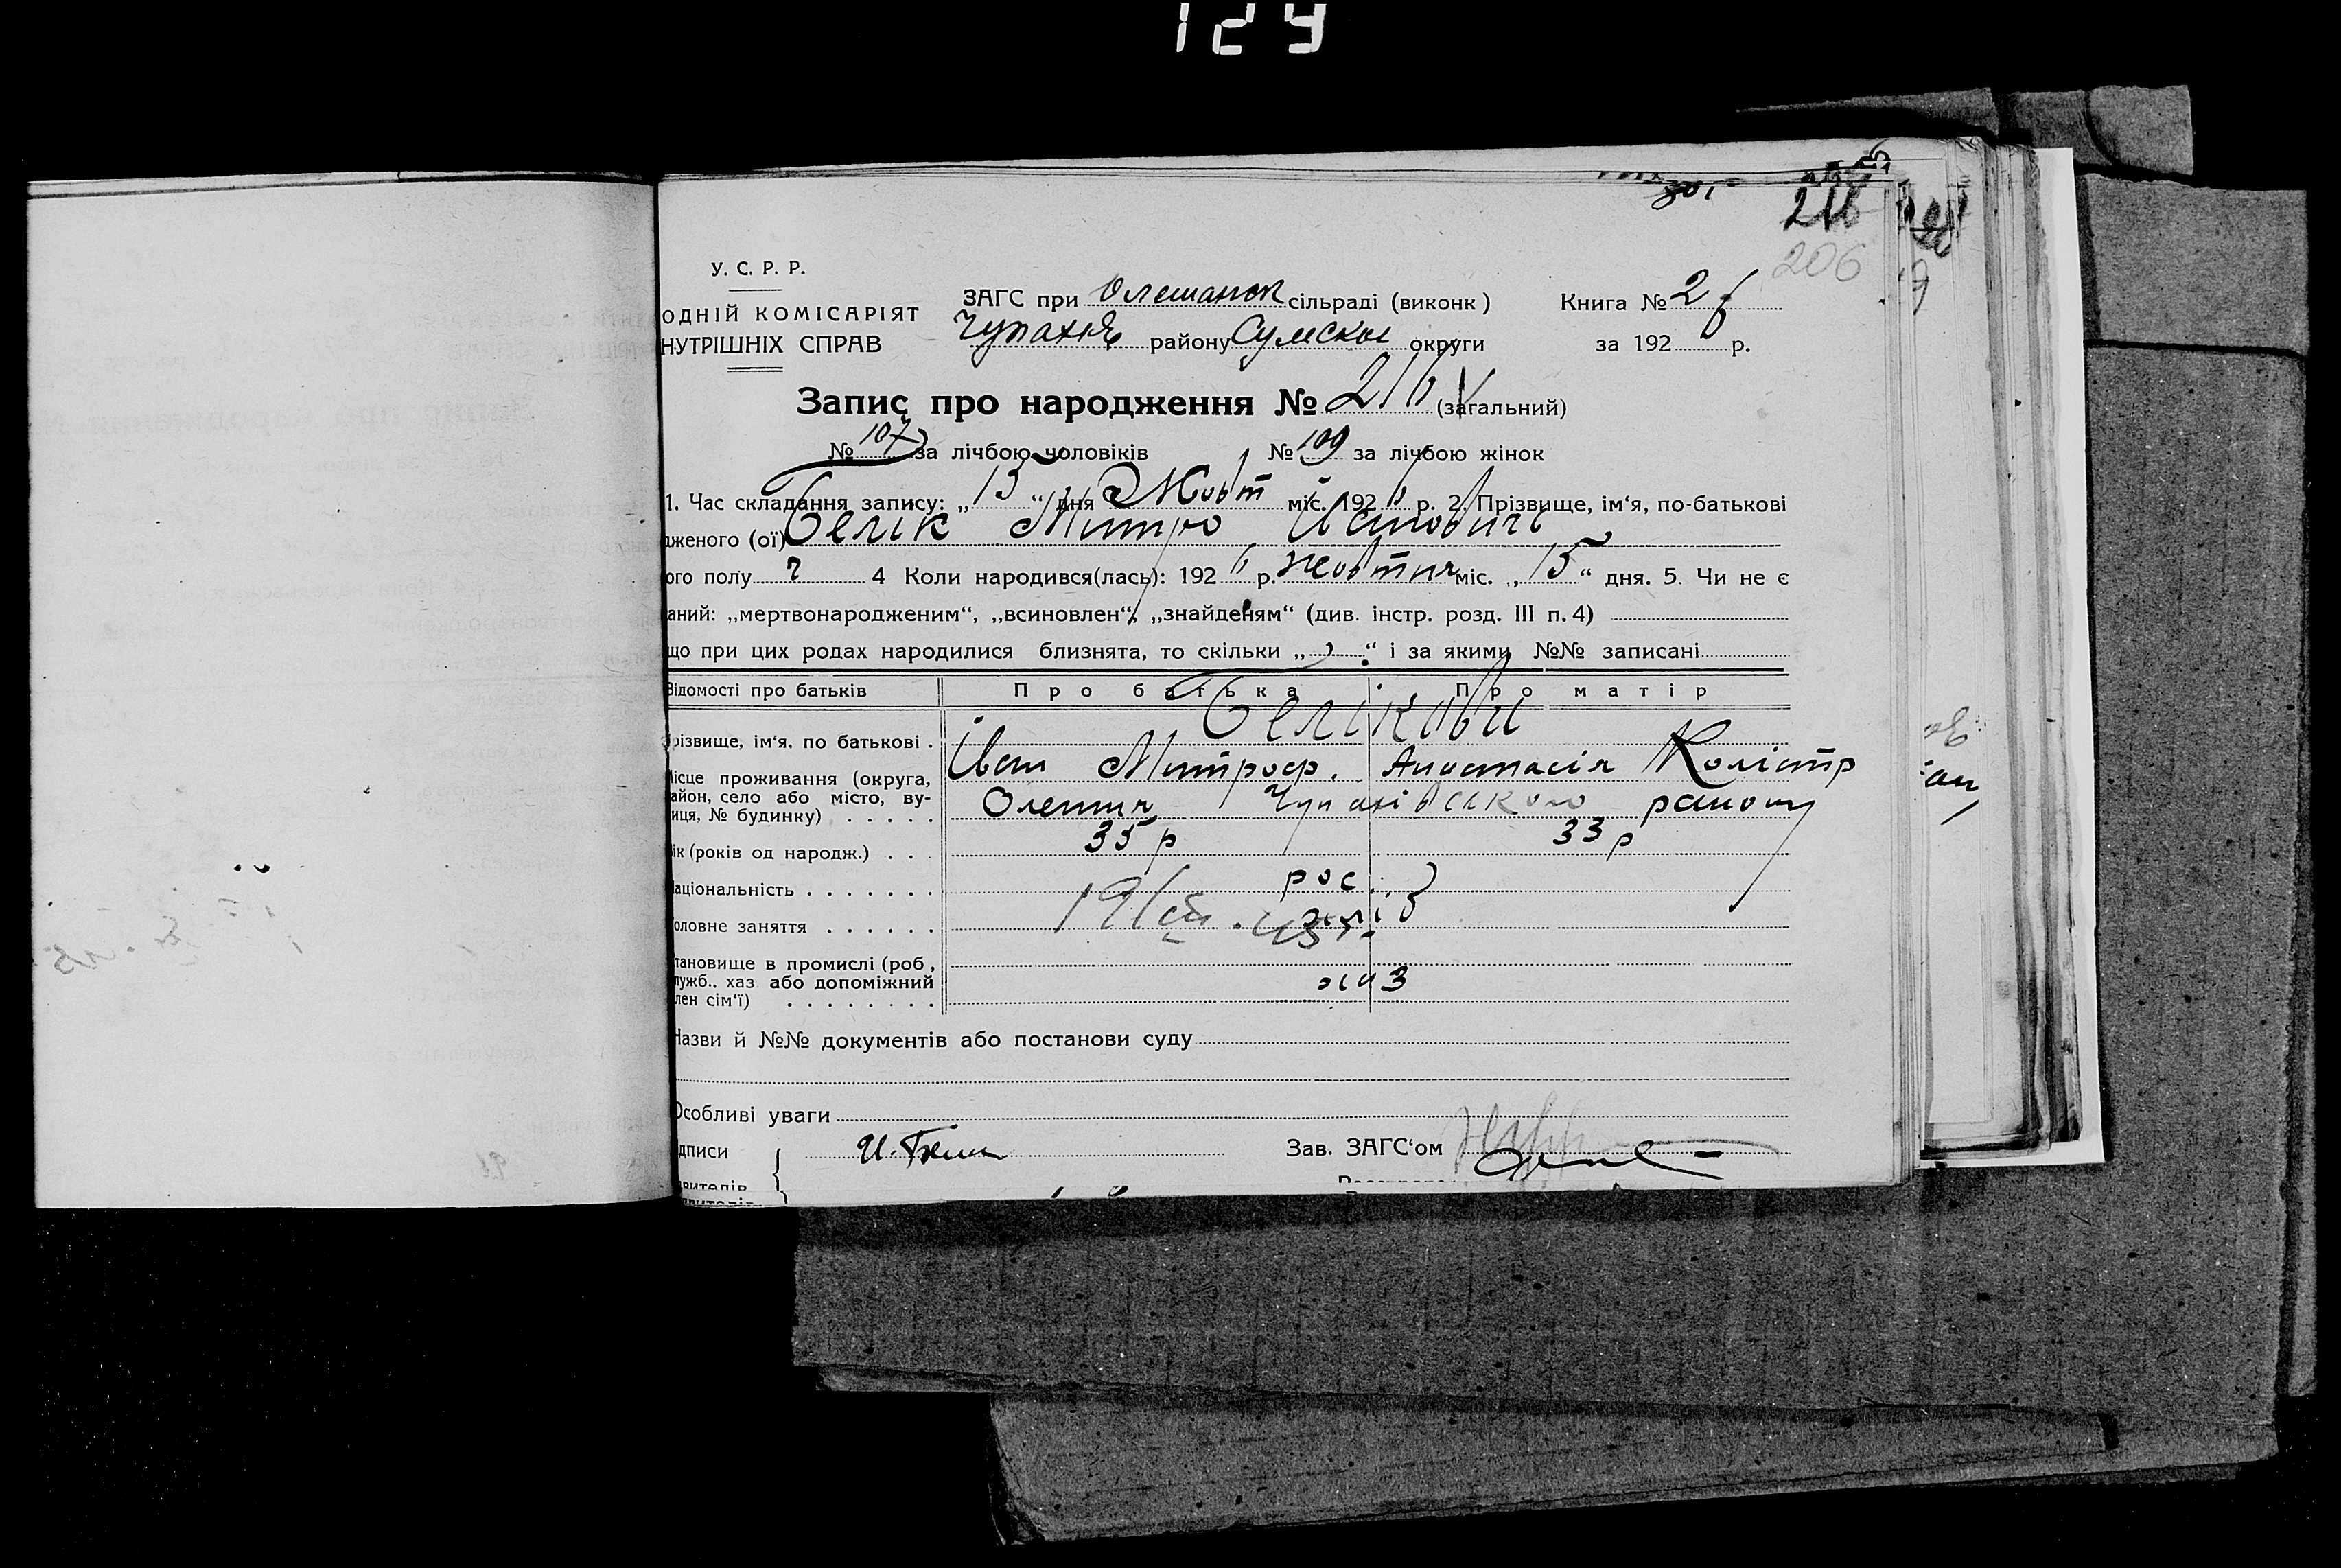 129
216
206
У. С. Р. Р.
ОДНІЙ КОМІСАРІЯТ
НУТРІШНІХ СПРАВ
ЗАГС при Олешанск сільраді (виконк )
Чупахів району Сумскої округи
Книга № 2
за 192 6 р.
Запис про народження № 216 (загальний)
№ 107 за лічбою чоловіків № 109 за лічбою жінок
1. Час складання запису: „ 15 “ дня Жовт міс. 192 6 р. 2. Прізвище, ім‘я, по-батькові
дженого (ої) Белік Митро Іванович
ого полу ч 4 Коли народився(лась): 192 6 р. жовтня міс. „ 15 “ дня. 5. Чи не є
аний: „мертвонародженим“, „всиновлен“, „знайденям“ (див. інстр. розд. III п. 4)
що при цих родах народилися близнята, то скільки „ “ і за якими №№ записані
Відомості про батьків Про батька Про матір
Белікови
різвище, ім‘я. по батькові .
Іван Митроф. Анастасія Калістр
Місце проживання (округа,
район, село або місто, ву-
лиця, № будинку) . . . . .
Олешня Чупахівського району
ік (років од народж.) . . . 35 р 33 р
аціональність . . . . . . . рос
оловне заняття . . . . . . хліб
тановище в промислі (роб,
лужб., хаз або допоміжний
лен сім‘ї) . . . . . . . .
хаз
Назви й №№ документів або постанови суду
Особливі уваги
дписи
Зав. ЗАГС‘ом